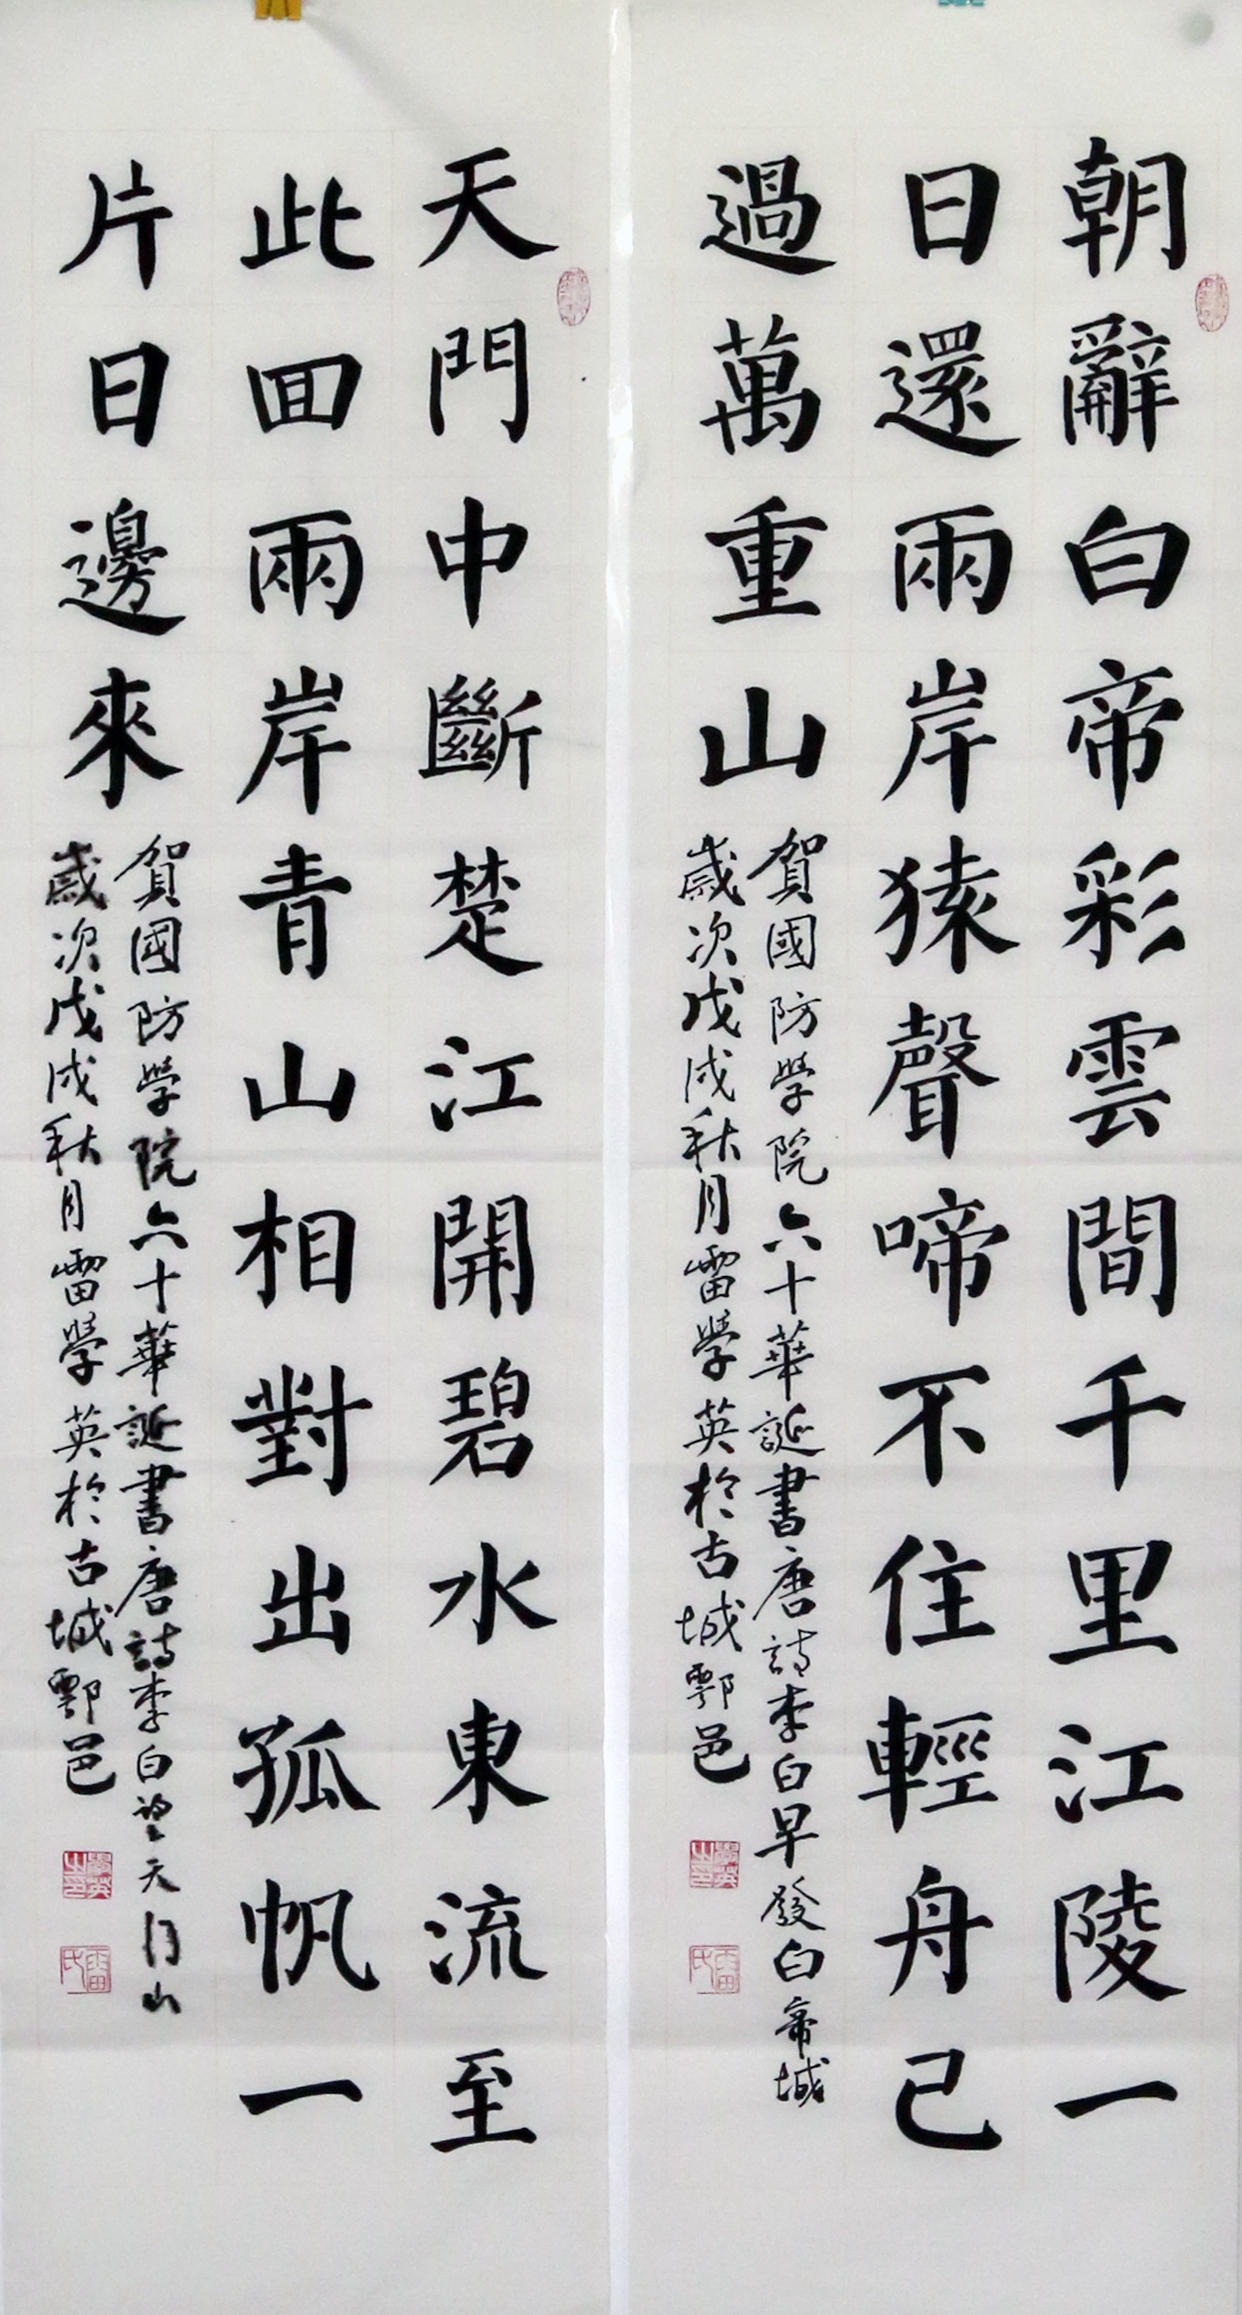 朝辭白帝彩雲間千里江陵一
日還兩岸猿聲啼不住輕舟已
過萬重山
賀國防學院六十華誕書唐詩李白早發白帝城
歲次戊戌秋月雷學英於古城鄠邑
學英之印
雷氏
天門中斷楚江開碧水東流至
此回兩岸青山相對出孤帆一
片日邊來
賀國防學院六十華誕書唐詩李白望天門山
歲次戊戌秋月雷學英於古城鄠邑
學英之印
雷氏